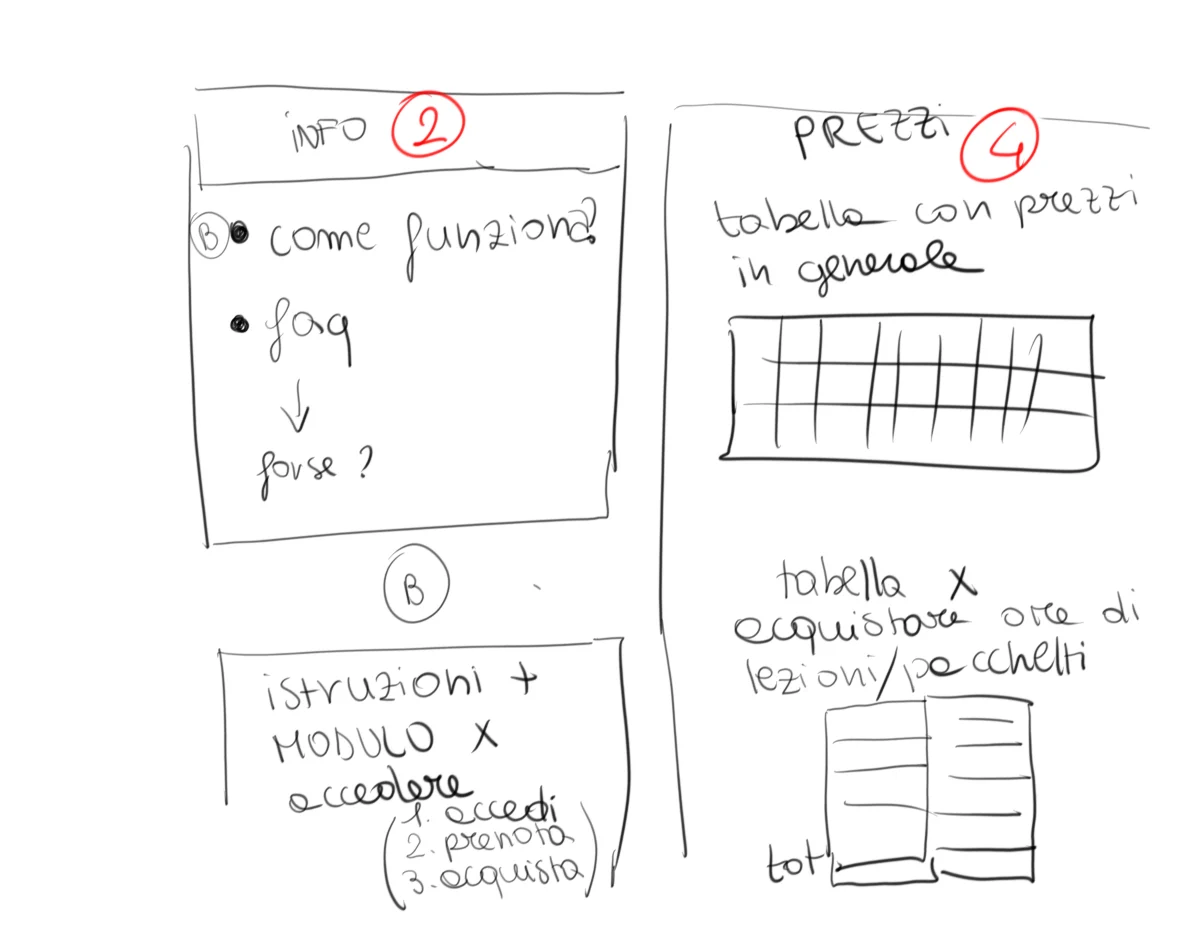 iNFO 2
B • come funziona?
• faq
forse ?
B
istruzioni +
MODULO X
accedere
(1. accedi
2. prenota
3. acquista)
PREZZi 4
tabella con prezzi
in generale
tabella X
acquistare ore di
lezioni/pacchetti
tot